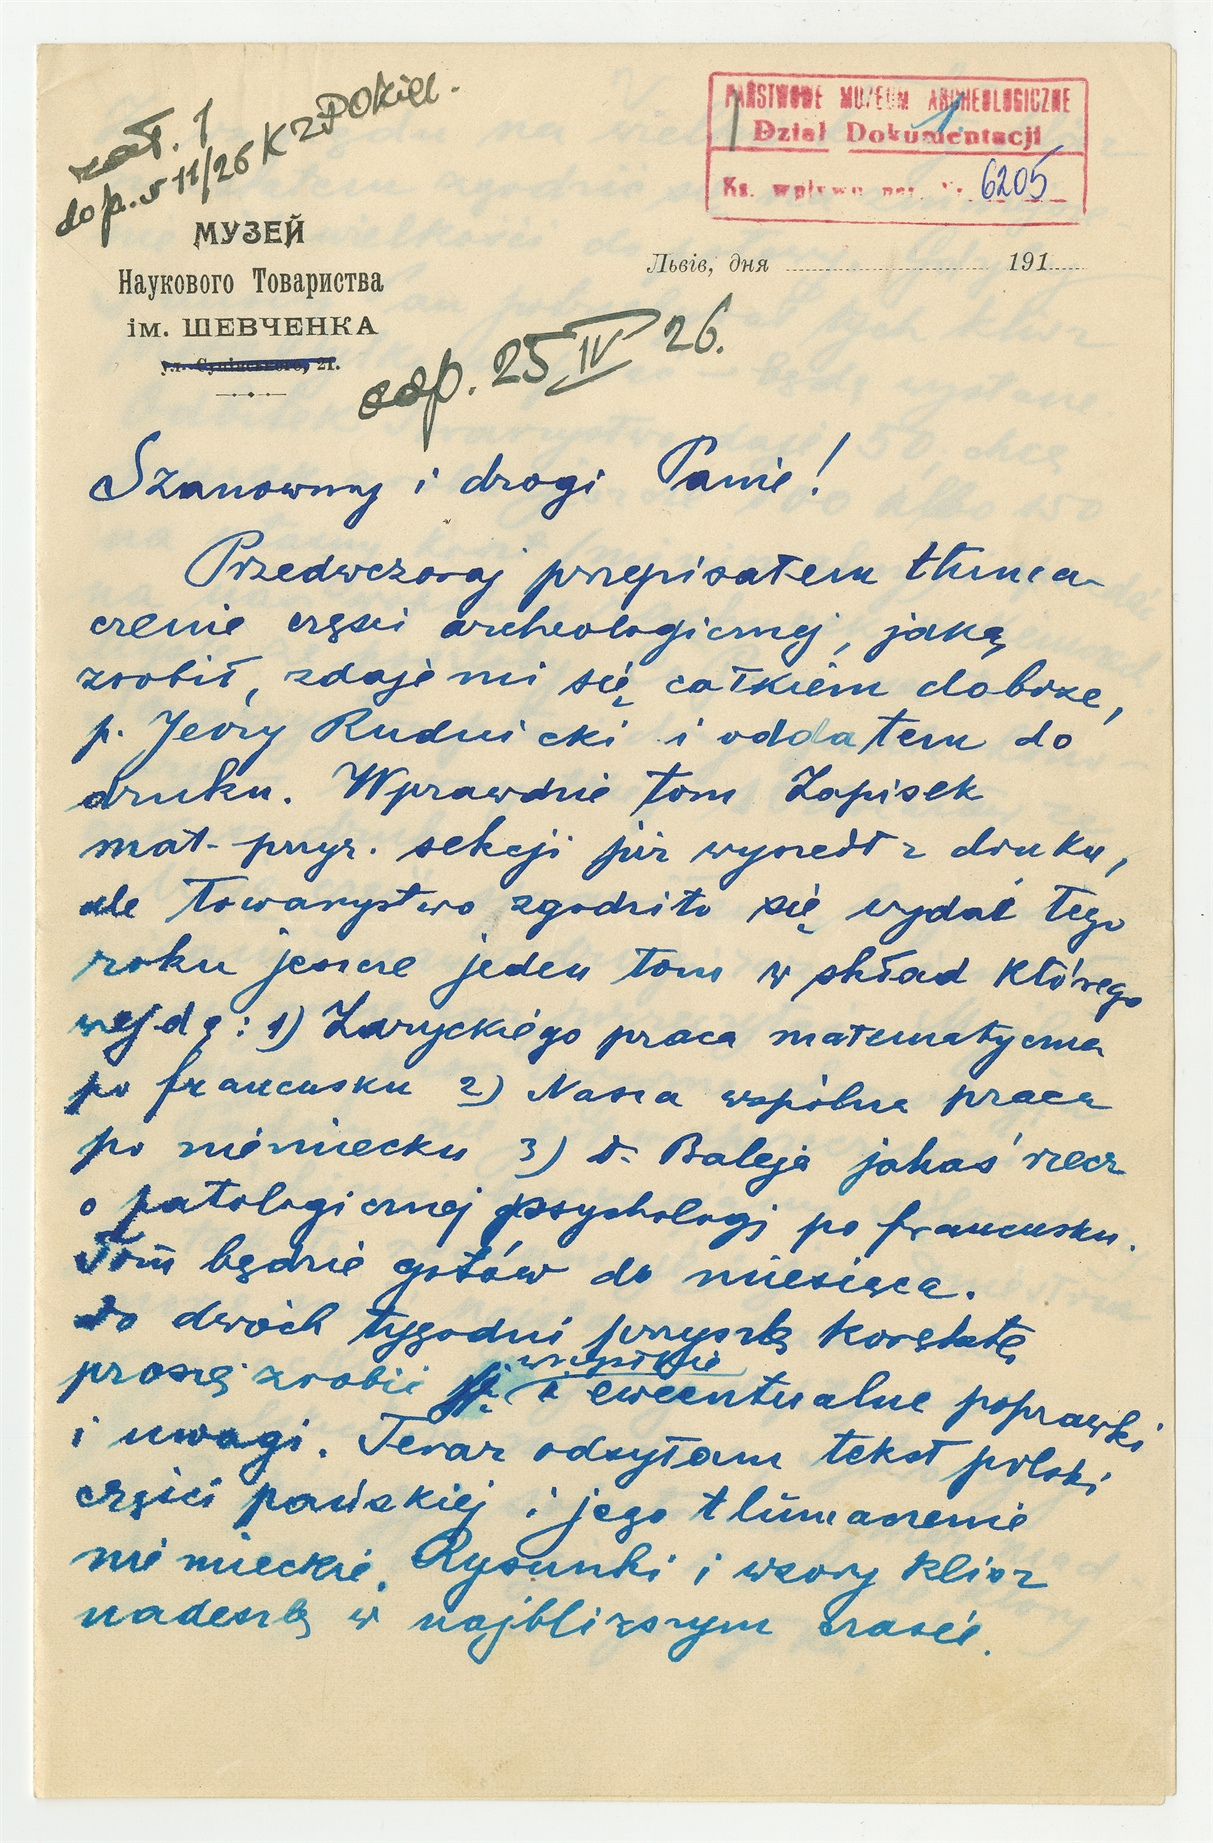 zał. 1
do p. 511/26 K z POKiel.
PAŃSTWOWE MUZEUM ARCHEOLOGICZNE
1.
Dział Dokumentacji
Ks. wpływu 6205
МУЗЕЙ
Наукового Товариства
ім. ШЕВЧЕНКА
ул. Супінського, 21.
Львів, дня 191
odp. 25 IV 26.
Szanowny i drogi Panie!
Przedwczoraj przepisałem tłuma-
czenie części archeologicznej, jaką
zrobił, zdaje mi się całkiem dobrze,
p. Jerzy Rudnicki i oddałem do
druku. Wprawdzie tom Zapisek
mat-przyr. sekcji już wyszedł z druku,
ale Towarzystwo zgodziło się wydać tego
roku jeszcze jeden tom w skład którego
wejdą: 1) Zaryckiego praca matematyczna
po francusku 2) Nasza wspólna praca
po niemiecku 3) d. Baleja jakaś rzecz
o patologicznej psychologj po francusku.
Tom będzie gotów do miesiąca.
Do dwóch tygodni przyszlę korektę
proszę zrobić wszystkie ewentualne poprawki
i uwagi. Teraz odsyłam tekst polski
części pańskiej i jego tlumaczenie
niemieckie. Rysunki i wzory klisz
nadeszlę w najbliższym czasie.